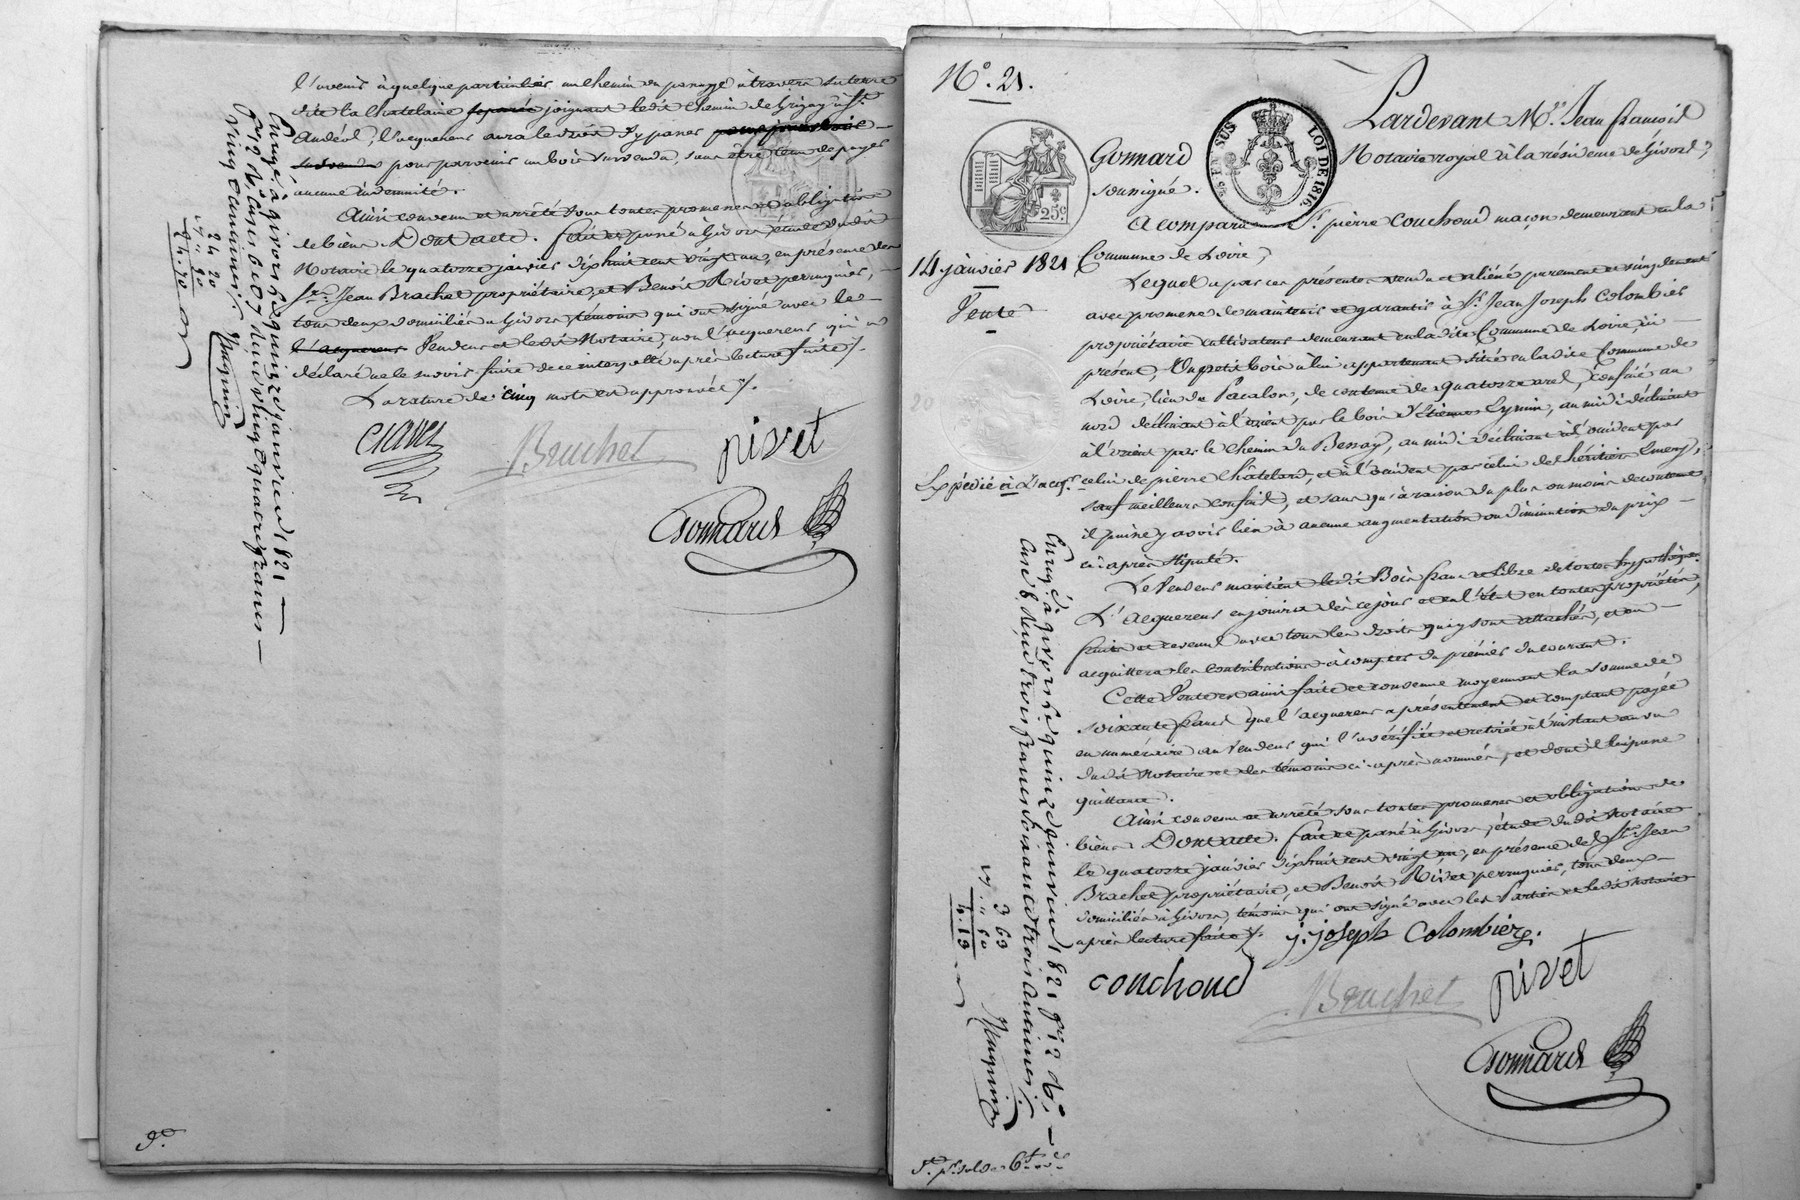 l'avenir à quelque particulier un chemin ou passage à travers sa terre
dite la Chatelaine joignant ledit chemin de Grigny à St.
Andéol, l'acquereur aura le droit d'y passer
pour parvenir au bois survendu, sans être tenu de payer
aucune indemnité.
Ainsi convenu et arrêté sous toutes promesses et obligation
de biens Dont acte. fait et passé à Givors, étude dudit
Notaire le quatorze janvier dix huit cent vingt un, en présence des
Srs. Jean Brachet propriétaire, et Benoit Rivet perruquier, —
tous deux domiciliés à Givors, témoins qui ont signé avec le —
l'acquereur Vendeur et ledit Notaire, non l'acquereur qui a
déclaré ne le savoir faire de ce interpellé après lecture faite /.
La rature de cinq mots est approuvée /.
Brachet
rivet
Gonnard
Enregé. à givors le quinze janvier 1821 —
vingt quatre francs —
24 20
2 40
Magnin
Nº. 21.
25 c
EN SUS
LOI DE 1816.
Pardevant Me. Jean françois
Gonnard Notaire royal à la résidence de Givors,
soussigné.
A comparu Sr. pierre Couchoud maçon demeurant en la
Commune de Loire,
14 janvier 1821
Vente
Lequel a par ces présentes vendu et aliéné purement et simplement
avec promesse de maintenir et garantir à Sr. Jean Joseph Colombier
propriétaire cultivateur demeurant en ladite Commune de Loire, ici —
présent, Un petit bois à lui appartenant situé en ladite Commune de
Loire, lieu du Pacalon, de contenue de quatorze ares, confiné au
nord déclinant à l'orient par le bois d'Etienne Eymin, au midi déclinant
à l'orient par le chemin du Bessay, au midi déclinant à l'occident par
Expédié à l'acqr.
celui de pierre Châtelard, et à l'occident par celui des héritiers Emery,
sauf meilleurs confins, et sans qu'à raison du plus ou moins de contenue
il puisse y avoir lieu à aucune augmentation ou diminution du prix —
ci après stipulé.
Le Vendeur maintient ledit Bois franc et libre de toutes hypothèques
L'acquereur en jouira dès ce jour et en l'état en toutes propriétés,
fruits et revenus avec tous les droits qui y sont attachés, et en —
acquittera les contributions à compter du premier du courant.
Cette Vente est ainsi faite et convenue moyennant la somme de
soixante francs que l'acquereur a présentement et comptant payée
en numéraire au Vendeur qui l'a vérifiée et retirée à l'instant au vu
dudit Notaire et des témoins ci-après nommés, et dont il lui passe
quittance.
Ainsi convenu et arrêté sous toutes promesses et obligations de
biens. Dont acte. fait et passé à Givors, étude dudit Notaire
le quatorze janvier dix huit cent vingt un, en présence des Srs. Jean
Brachet propriétaire, et Benoit Rivet perruquier, tous deux —
domiciliés à Givors, témoins qui ont signé avec les Parties et ledit Notaire
après lecture faite /.
j. joseph Colombier.
couchoud
Brachet
rivet
Gonnard
Enregé. à givors le quinze janvier 1821
trois francs soixante trois centimes
3 63
Magnin